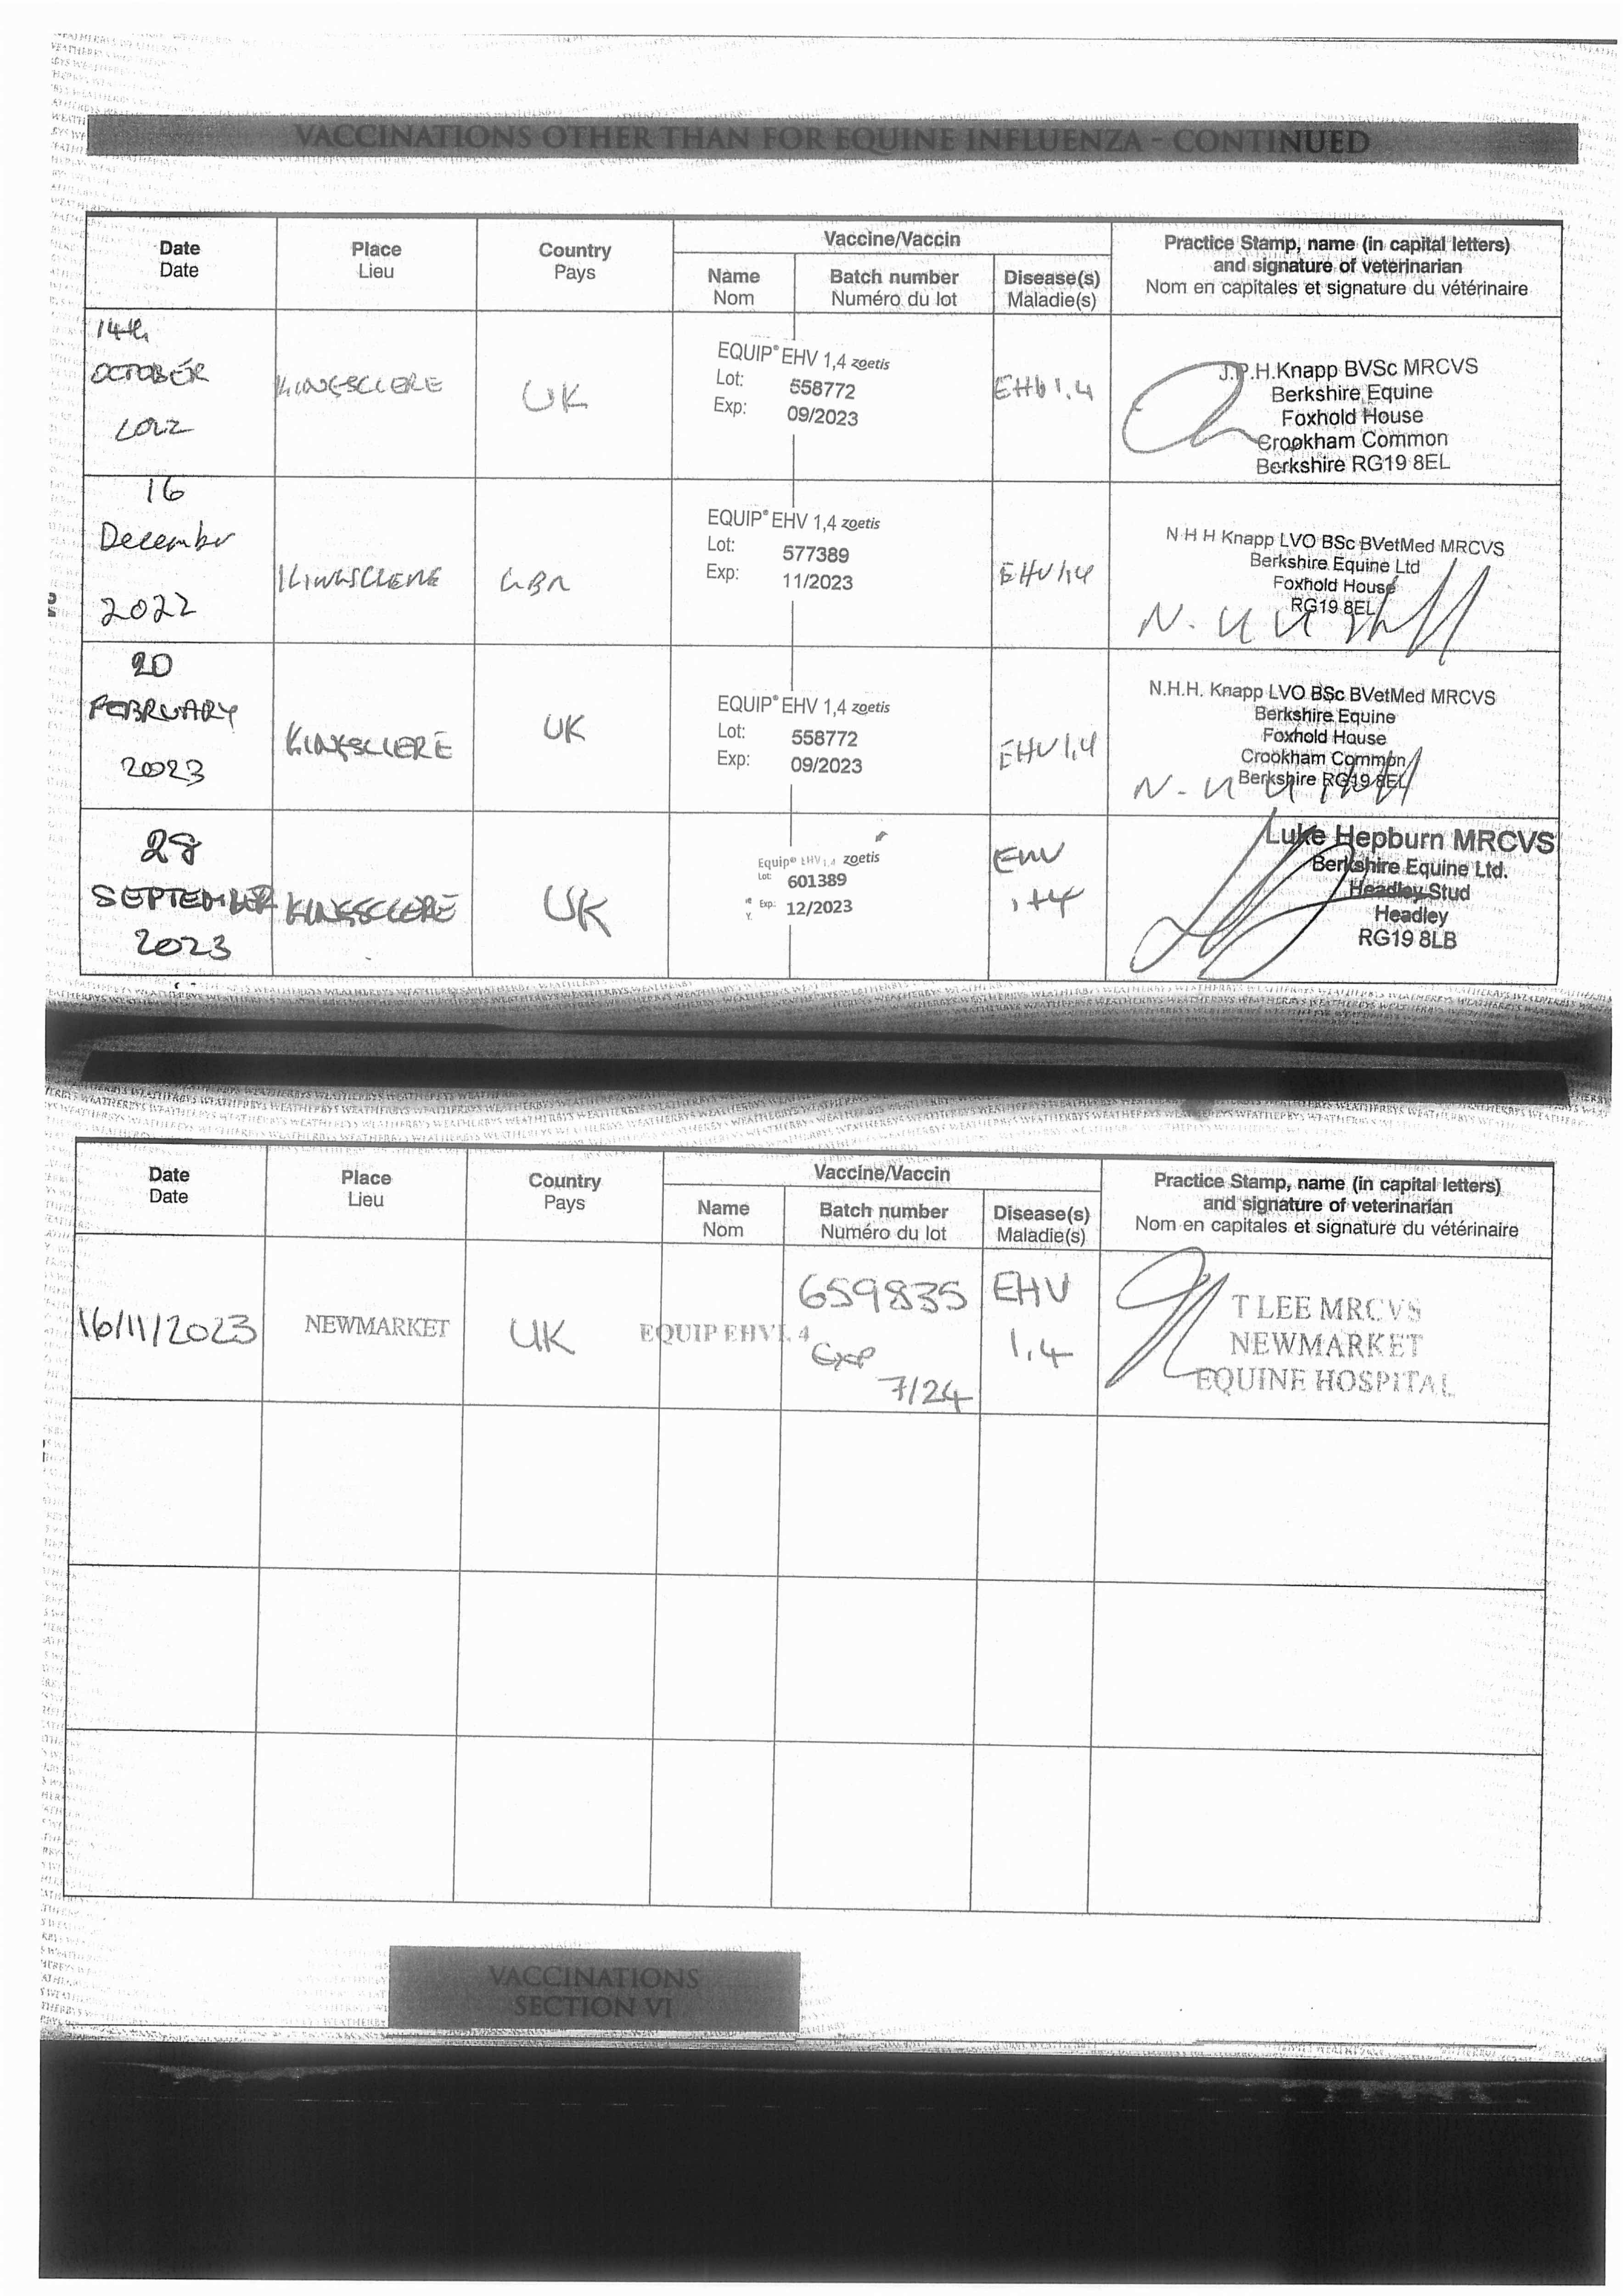 VACCINATIONS OTHER THAN FOR EQUINE INFLUENZA - CONTINUED
Date
Date
Place
Lieu
Country
Pays
Vaccine/Vaccin
Name
Nom
Batch number
Numéro du lot
Disease(s)
Maladie(s)
Practice Stamp, name (in capital letters)
and signature of veterinarian
Nom en capitales et signature du vétérinaire
14th
OCTOBER
2022
KINGSCLERE
UK
EQUIP® EHV 1,4 zoetis
Lot: 558772
Exp: 09/2023
EHV 1,4
J.P.H.Knapp BVSc MRCVS
Berkshire Equine
Foxhold House
Crookham Common
Berkshire RG19 8EL
16
December
2022
KINGSCLERE
GBR
EQUIP® EHV 1,4 zoetis
Lot: 577389
Exp: 11/2023
EHV 1,4
N H H Knapp LVO BSc BVetMed MRCVS
Berkshire Equine Ltd
Foxhold House
RG19 8EL
20
FEBRUARY
2023
KINGSCLERE
UK
EQUIP® EHV 1,4 zoetis
Lot: 558772
Exp: 09/2023
EHV 1,4
N.H.H. Knapp LVO BSc BVetMed MRCVS
Berkshire Equine
Foxhold House
Crookham Common
Berkshire RG19 8EL
28
SEPTEMBER
2023
KINGSCLERE
UK
Equip® EHV 1,4 zoetis
Lot: 601389
Exp: 12/2023
EHV
1+4
Luke Hepburn MRCVS
Berkshire Equine Ltd.
Headley Stud
Headley
RG19 8LB
Date
Date
Place
Lieu
Country
Pays
Vaccine/Vaccin
Name
Nom
Batch number
Numéro du lot
Disease(s)
Maladie(s)
Practice Stamp, name (in capital letters)
and signature of veterinarian
Nom en capitales et signature du vétérinaire
16/11/2023
NEWMARKET
UK
EQUIP EHV1, 4
659835
Exp
7/24
EHV
1,4
T LEE MRCVS
NEWMARKET
EQUINE HOSPITAL
VACCINATIONS
SECTION VI